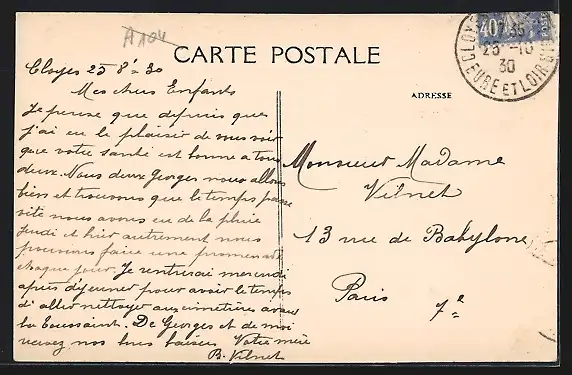 A104
CARTE POSTALE
ADRESSE
40
CLOYES
26 -10
30
EURE ET LOIR
Cloyes 25 8e 30
Mes chers Enfants
Je pense que depuis que
j'ai eu le plaisir de vous voir
que votre santé est bonne a tous
deux. Nous deux Georges nous allons
bien et trouvons que le temps passe
vite nous avons eu de la pluie
jeudi et hier autrement nous
pouvons faire une promenade
chaque jour. Je rentrerai mercredi
après déjeuner pour avoir le temps
d'aller nettoyer aux cimetières avant
la Toussaint. De Georges et de moi
recevez nos bons baisers Votre mère
B. Vilnet
Monsieur Madame
Vilnet
13 rue de Babylone
Paris 7e